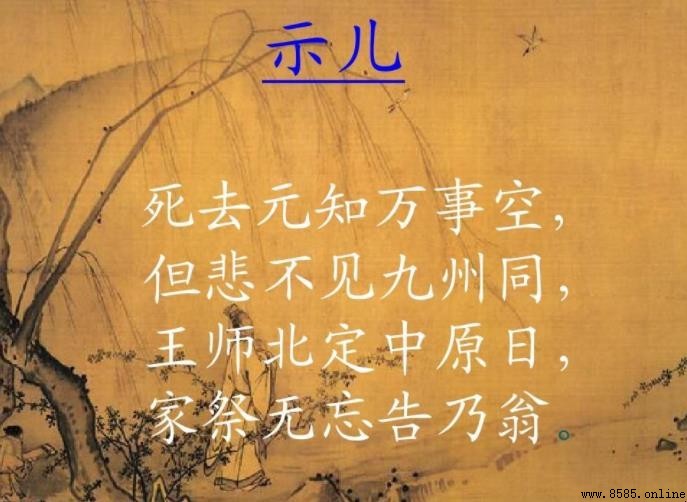 示儿
死去元知万事空，
但悲不见九州同，
王师北定中原日，
家祭无忘告乃翁。
www.8585.online